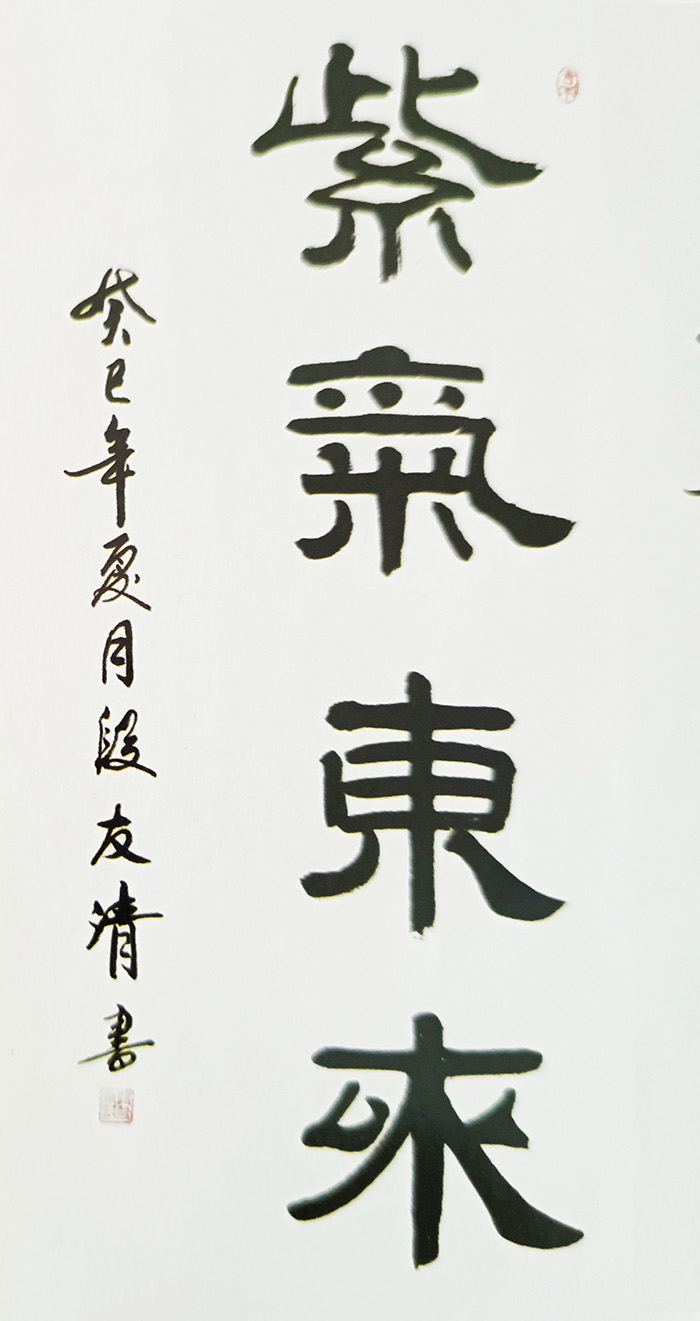 紫氣東來
癸巳年夏月段友清書